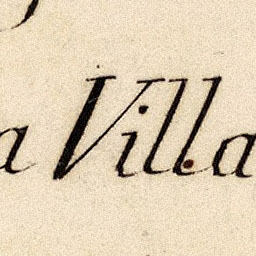 a Villa